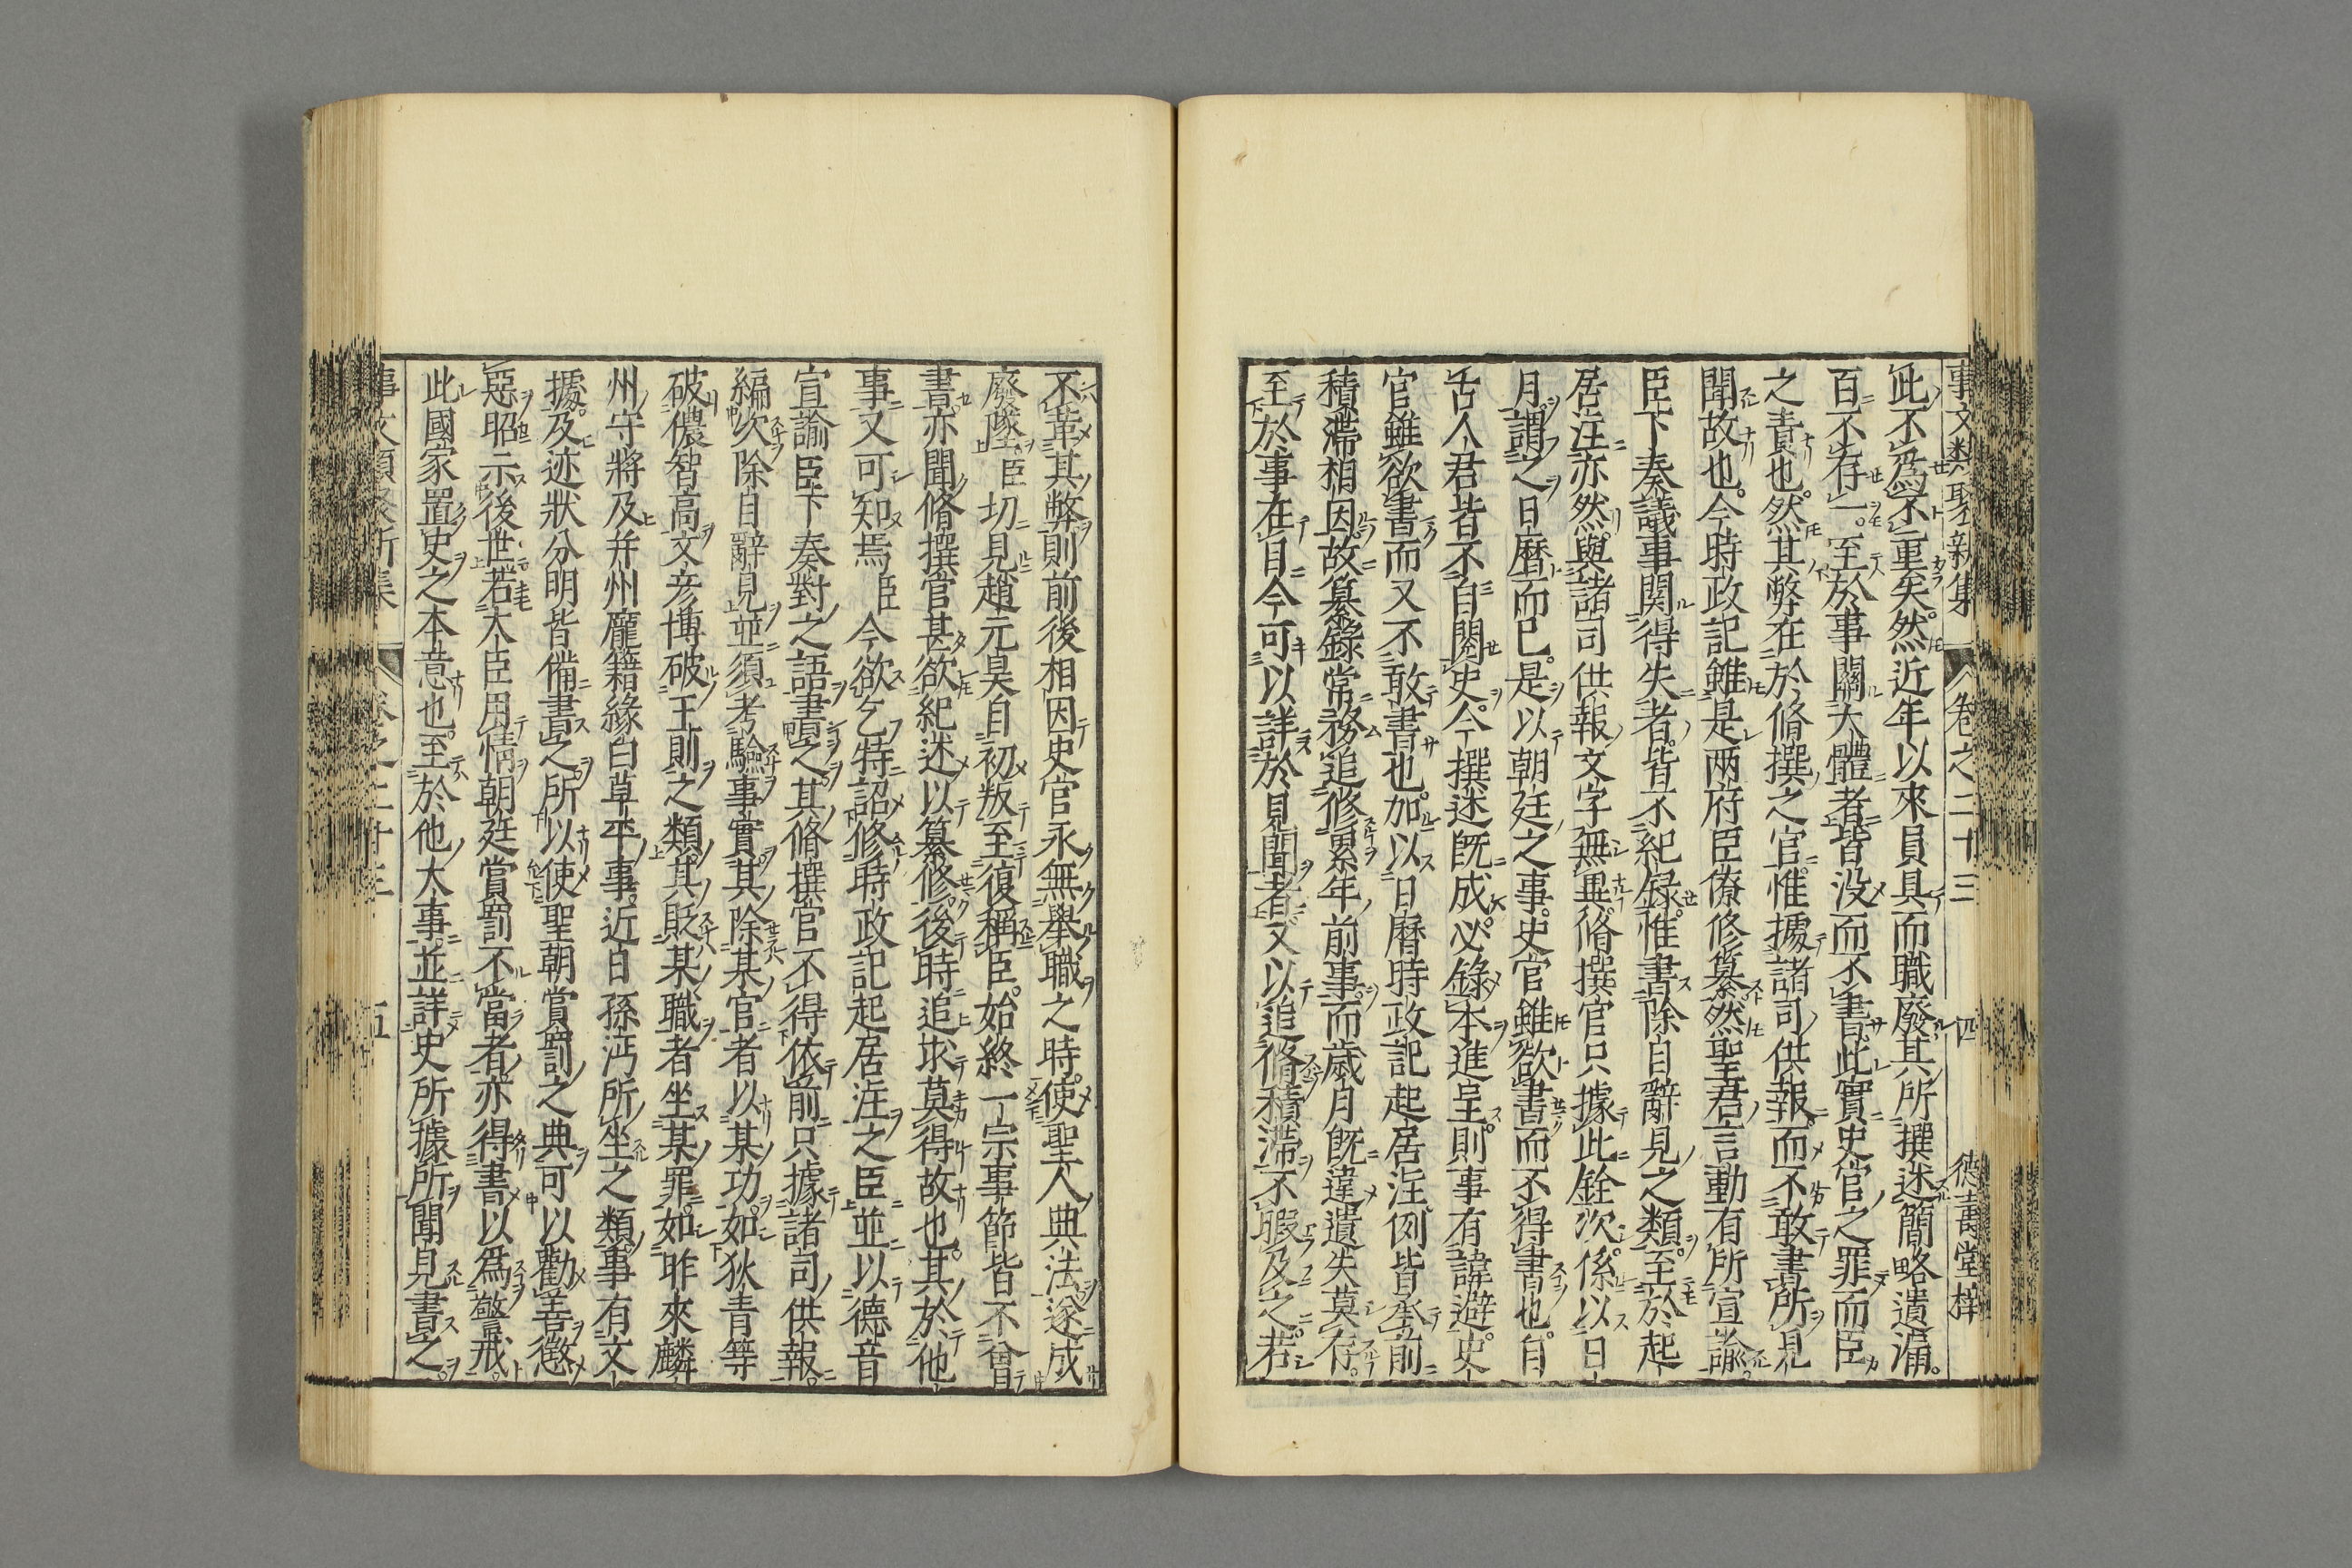 事文類聚新集 卷之二十三 四 德壽堂梓
此不爲不重矣然近年以來員具而職廢其所撰述簡略遺漏
百不存一至於事關大體者皆没而不書此實史官之罪而臣
之責也然其弊在於脩撰之官惟據諸司供報而不敢書所見
聞故也今時政記雖是兩府臣僚修纂然聖君言動有所宣諭
臣下奏議事関得失者皆不紀録惟書除目辭見之類至於起
居注亦然與諸司供報文字無異脩撰官只據此銓次係以日
月謂之日曆而已是以朝廷之事史官雖欲書而不得書也自
古人君皆不自閲史今撰述既成必錄本進呈則事有諱避史
官雖欲書而又不敢書也加以日曆時政記起居注例皆承前
積滯相因故纂錄常務追修累年前事而歲月既違遺失莫存
至於事在目今可以詳於見聞者又以追脩積滯不暇及之若
不革其弊則前後相因史官永無舉職之時使聖人典法遂成
廢墜臣切見趙元昊自初叛至復稱臣始終一宗事節皆不曾
書亦聞脩撰官甚欲紀述以纂修後時追求莫得故也其於他
事又可知焉臣今欲乞特詔修時政記起居注之臣並以德音
宣諭臣下奏對之語書之其脩撰官不得依前只據諸司供報
編次除目辭見並須考驗事實其除某官者以某功如狄青等
破儂智高文彦博破王則之類其貶某職者坐某罪如昨來麟
州守將及并州龐籍緣白草平事近日孫沔所坐之類事有文
據及迹狀分明皆備書之所以使聖朝賞罰之典可以勸善懲
惡昭示後世若大臣用情朝廷賞罰不當者亦得書以爲警戒
此國家置史之本意也至於他大事並詳史所據所聞見書之
事文類聚新集 卷之二十三 五